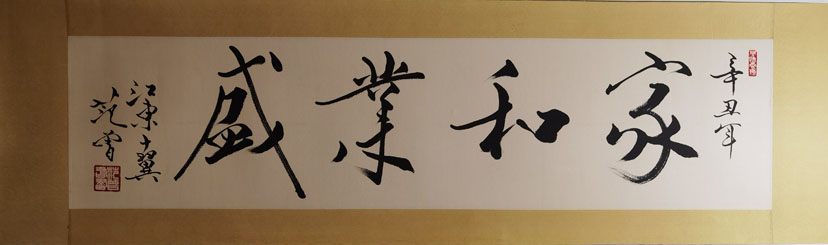 辛丑年
家和業盛
江東十翼
范曾